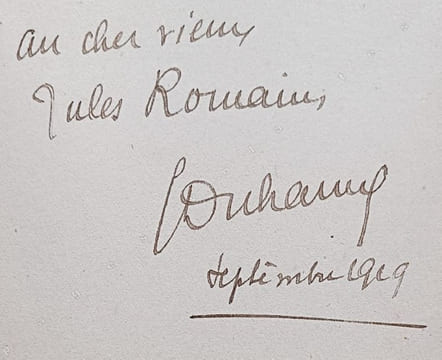 au cher vieux
Jules Romains,
GDuhamel
septembre 1919